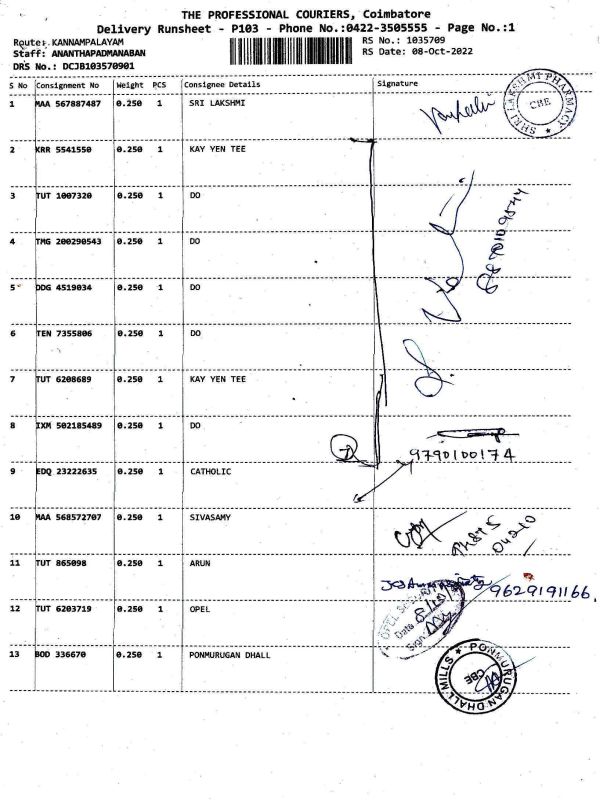 THE PROFESSIONAL COURIERS, Coimbatore
Delivery Runsheet - P103 - Phone No.:0422-3505555 - Page No.:1
Route: KANNAMPALAYAM
RS No.: 1035709
Staff: ANANTHAPADMANABAN
RS Date: 08-Oct-2022
DRS No.: DCJB103570901
S No Consignment No Weight PCS Consignee Details Signature
1 MAA 567887487 0.250 1 SRI LAKSHMI
SHRI LAKSHMI PHARMACY CBE
2 KRR 5541550 0.250 1 KAY YEN TEE
3 TUT 1007320 0.250 1 DO
4 TMG 200290543 0.250 1 DO
5 DDG 4519034 0.250 1 DO
6 TEN 7355806 0.250 1 DO
7 TUT 6208689 0.250 1 KAY YEN TEE
8 IXM 502185489 0.250 1 DO
7
9790100174
9 EDQ 23222635 0.250 1 CATHOLIC
10 MAA 568572707 0.250 1 SIVASAMY
04210
11 TUT 865098 0.250 1 ARUN
9629191166
12 TUT 6203719 0.250 1 OPEL
Date 8/10/
Sign
13 BOD 336670 0.250 1 PONMURUGAN DHALL
PONMURUGAN DHALL MILLS CBE